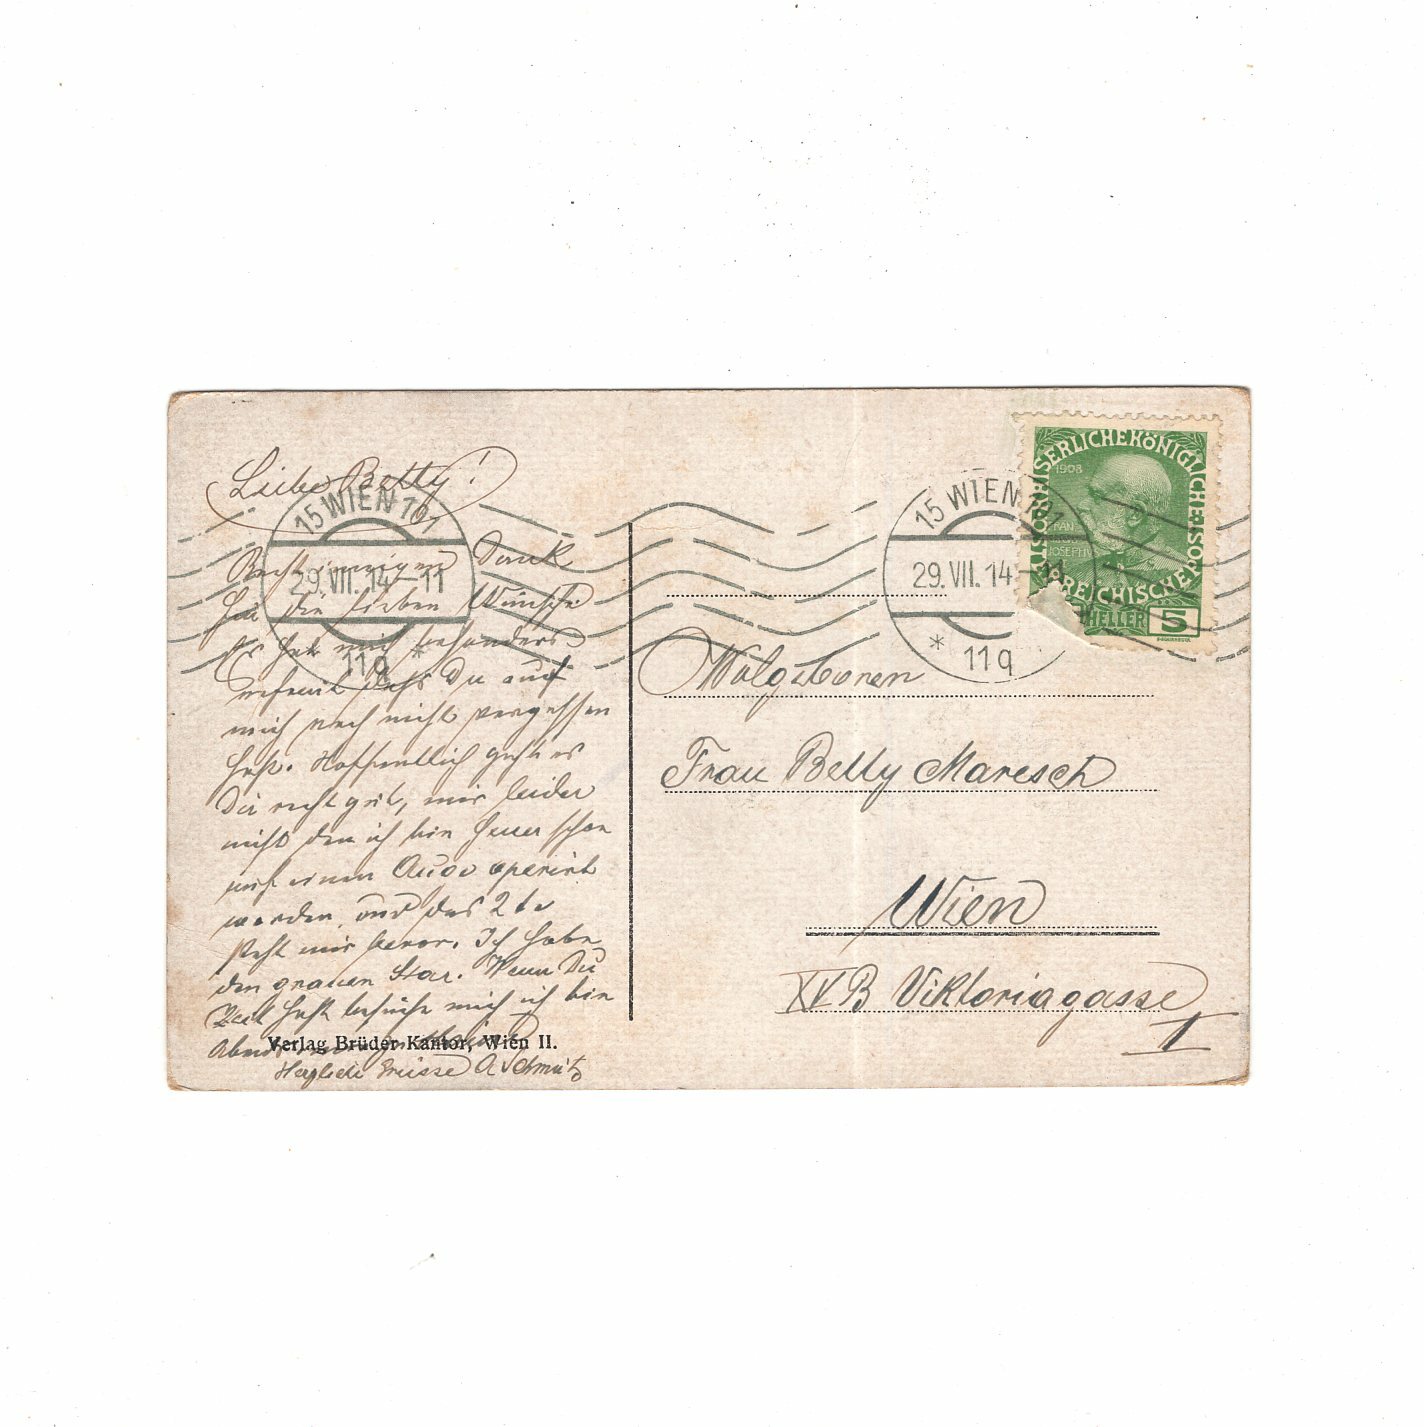 Liebe Betty!
Recht innigen Dank
für die lieben Wünsche
Es hat mich besonders
gefreut daß Du auf
mich noch nicht vergessen
hast. Hoffentlich geht es
Dir recht gut, mir leider
nicht den ich bin heuer schon
auf einen Auge operirt
worden und das 2te
steht mir bevor. Ich habe
den grauen Star. Wenn Du
Zeit hast besuche mich ich bin
Abends
Herzliche Grüsse A Schmutz
Verlag Brüder Kantor, Wien II.
15 WIEN 101
29.VII.14-11
* 11q *
15 WIEN 101
29.VII.14-11
* 11q
KAISERLICHE KÖNIGLICHE ÖSTERREICHISCHE
1908
FRANZ
JOSEPH I
HELLER 5
Wolgeboren
Frau Betty Maresch
Wien
XV B Viktoriagasse
1